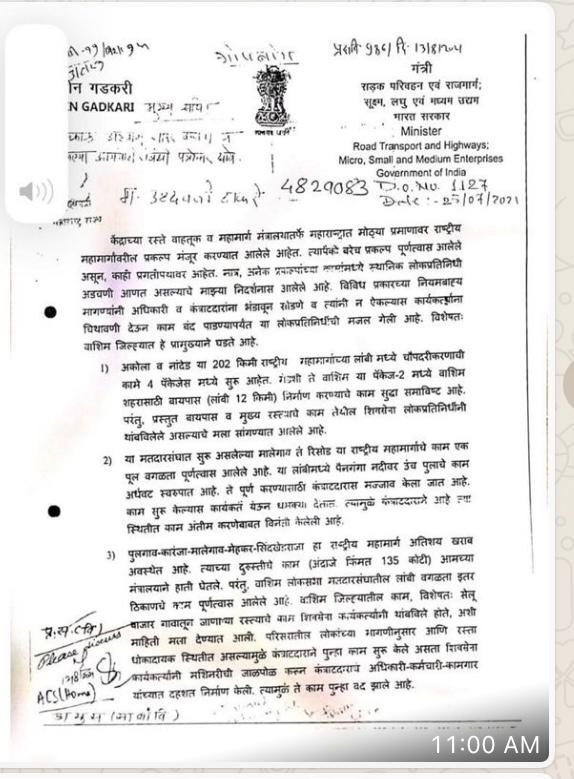 गोपनीय
मंत्री
न गडकरी
N GADKARI
सड़क परिवहन एवं राजमार्ग;
सूक्ष्म, लघु एवं मध्यम उद्यम
भारत सरकार
Minister
Road Transport and Highways;
Micro, Small and Medium Enterprises
Government of India
4829083 D.O. No. 1127
Date :- 25/07/2021
महाराष्ट्र राज्य
केंद्राच्या रस्ते वाहतूक व महामार्ग मंत्रालयातर्फे महाराष्ट्रात मोठ्या प्रमाणावर राष्ट्रीय
महामार्गावरील प्रकल्प मंजूर करण्यात आलेले आहेत. त्यापैकी बरेच प्रकल्प पूर्णत्वास आलेले
असून, काही प्रगतीपथावर आहेत. मात्र, अनेक प्रकल्पांच्या कामांमध्ये स्थानिक लोकप्रतिनिधी
अडचणी आणत असल्याचे माझ्या निदर्शनास आलेले आहे. विविध प्रकारच्या नियमबाह्य
मागण्यांनी अधिकारी व कंत्राटदारांना भंडावून सोडणे व त्यांनी न ऐकल्यास कार्यकर्त्यांना
चिथावणी देऊन काम बंद पाडण्यापर्यंत या लोकप्रतिनिधींची मजल गेली आहे. विशेषतः
वाशिम जिल्ह्यात हे प्रामुख्याने घडते आहे.
1) अकोला व नांदेड या 202 किमी राष्ट्रीय महामार्गाच्या लांबी मध्ये चौपदरीकरणाची
कामे 4 पॅकेजेस मध्ये सुरू आहेत. मेडशी ते वाशिम या पॅकेज-2 मध्ये वाशिम
शहरासाठी बायपास (लांबी 12 किमी) निर्माण करण्याचे काम सुद्धा समाविष्ट आहे.
परंतु, प्रस्तुत बायपास व मुख्य रस्त्याचे काम तेथील शिवसेना लोकप्रतिनिधींनी
थांबविलेले असल्याचे मला सांगण्यात आलेले आहे.
2) या मतदारसंघात सुरू असलेल्या मालेगाव ते रिसोड या राष्ट्रीय महामार्गाचे काम एक
पूल वगळता पूर्णत्वास आलेले आहे. या लांबीमध्ये पैनगंगा नदीवर उंच पुलाचे काम
अर्धवट स्वरुपात आहे. ते पूर्ण करण्यासाठी कंत्राटदारास मज्जाव केला जात आहे.
काम सुरू केल्यास कार्यकर्ते येऊन धमक्या देतात. त्यामुळे कंत्राटदाराने आहे त्या
स्थितीत काम अंतीम करणेबाबत विनंती केलेली आहे.
3) पुलगाव-कारंजा-मालेगाव-मेहकर-सिंदखेडराजा हा राष्ट्रीय महामार्ग अतिशय खराब
अवस्थेत आहे. त्याच्या दुरुस्तीचे काम (अंदाजे किंमत 135 कोटी) आमच्या
मंत्रालयाने हाती घेतले. परंतु, वाशिम लोकसभा मतदारसंघातील लांबी वगळता इतर
ठिकाणचे काम पूर्णत्वास आलेले आहे. वाशिम जिल्ह्यातील काम, विशेषतः सेलू
बाजार गावातून जाणाऱ्या रस्त्याचे काम शिवसेना कार्यकर्त्यांनी थांबविले होते, अशी
माहिती मला देण्यात आली. परिसरातील लोकांच्या मागणीनुसार आणि रस्ता
धोकादायक स्थितीत असल्यामुळे कंत्राटदाराने पुन्हा काम सुरू केले असता शिवसेना
कार्यकर्त्यांनी मशिनरीची जाळपोळ करून कंत्राटदाराचे अधिकारी-कर्मचारी-कामगार
यांच्यात दहशत निर्माण केली. त्यामुळे ते काम पुन्हा बंद झाले आहे.
Please discuss
ACS (Home)
11:00 AM